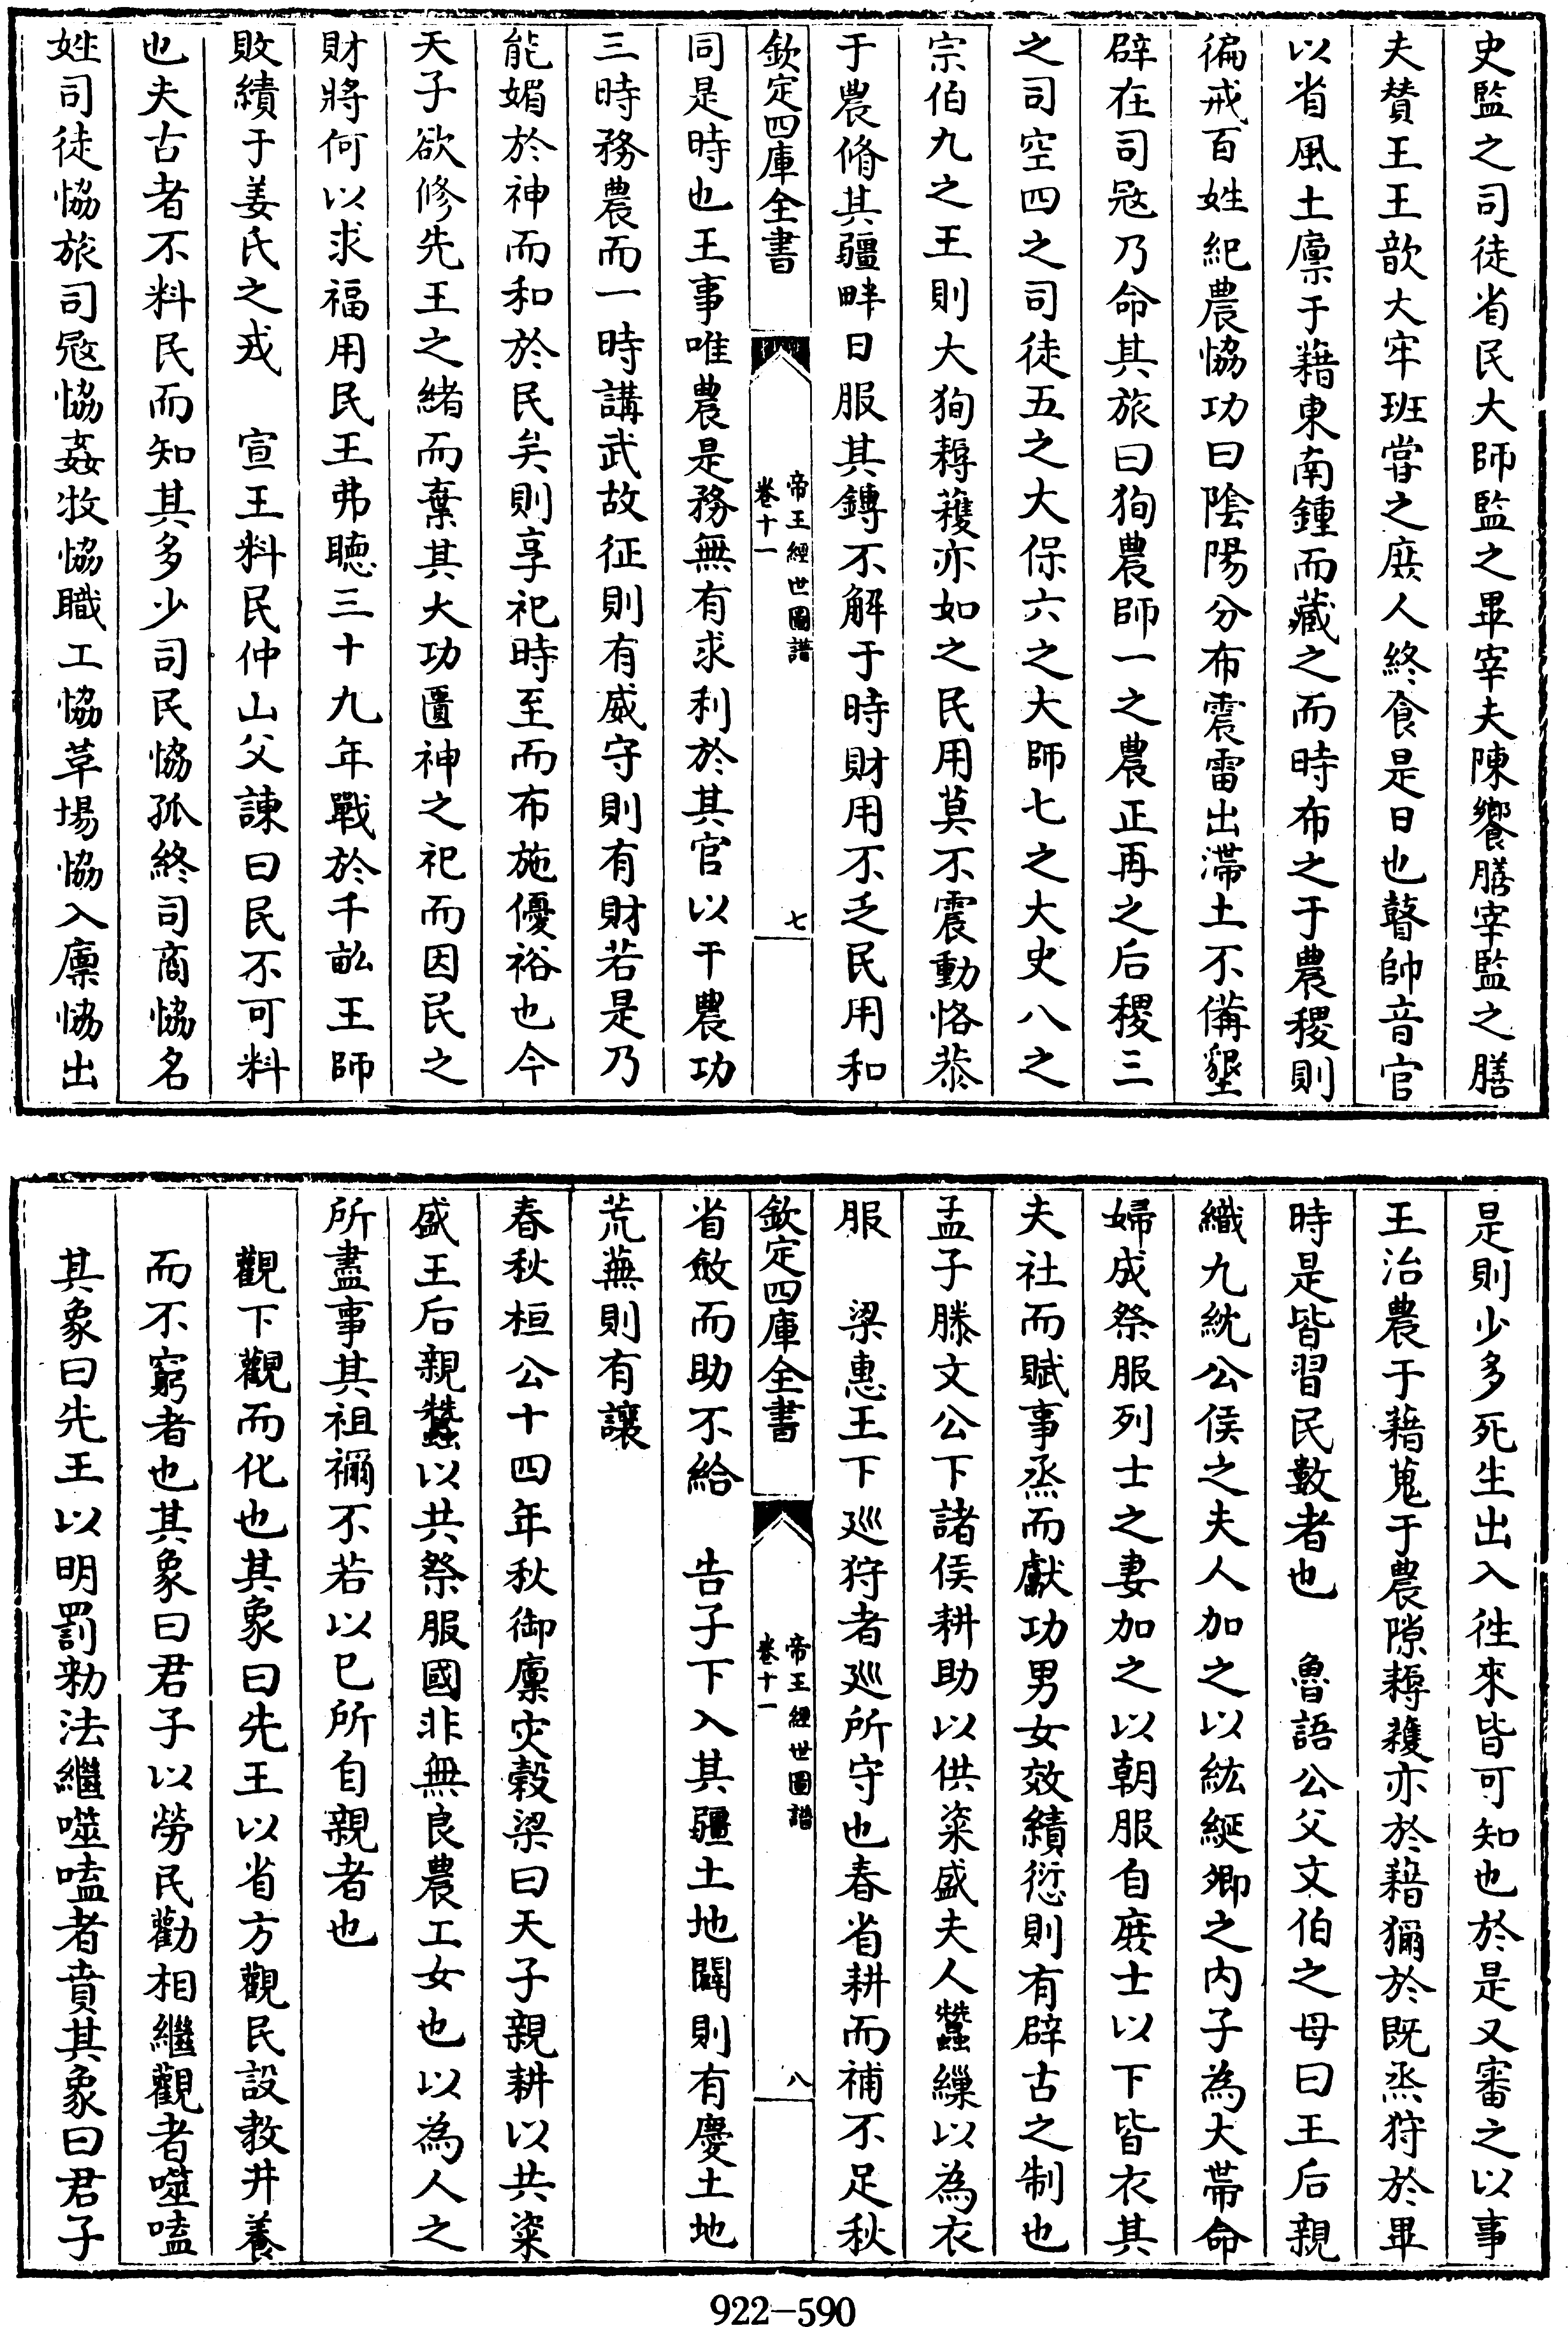 史監之司徒省民大師監之畢宰夫陳饗膳宰監之膳
夫賛王王歆大牢班甞之庶人終食是日也瞽帥音官
以省風土廩于藉東南鍾而藏之而時布之于農稷則
徧戒百姓紀農恊功曰陰陽分布震雷出滯土不備墾
辟在司宼乃命其旅曰狥農師一之農正再之后稷三
之司空四之司徒五之大保六之大師七之大史八之
宗伯九之王則大狥耨穫亦如之民用莫不震動恪恭
于農脩其疆畔日服其鎛不解于時財用不乏民用和
欽定四庫全書
帝王經世圖譜
卷十一
七
同是時也王事唯農是務無有求利於其官以干農功
三時務農而一時講武故征則有威守則有財若是乃
能媚於神而和於民矣則享祀時至而布施優裕也今
天子欲修先王之緒而棄其大功匱神之祀而因民之
財將何以求福用民王弗聽三十九年戰於千畝王師
敗績于姜氏之戎　宣王料民仲山父諫曰民不可料
也夫古者不料民而知其多少司民恊孤終司商恊名
姓司徒恊旅司宼恊姦牧恊職工恊草場恊入廩恊出
是則少多死生出入徃來皆可知也於是又審之以事
王治農于藉蒐于農隙耨穫亦於藉獮於既烝狩於畢
時是皆習民數者也　魯語公父文伯之母曰王后親
織九紞公侯之夫人加之以紘綖卿之内子為大帶命
婦成祭服列士之妻加之以朝服自庶士以下皆衣其
夫社而賦事烝而獻功男女效績愆則有辟古之制也
孟子滕文公下諸侯耕助以供粢盛夫人蠶繅以為衣
服　梁惠王下廵狩者廵所守也春省耕而補不足秋
欽定四庫全書
帝王經世圖譜
卷十一
八
省斂而助不給　告子下入其疆土地闢則有慶土地
荒蕪則有讓
春秋桓公十四年秋御廩灾榖梁曰天子親耕以共粢
盛王后親蠶以共祭服國非無良農工女也以為人之
所盡事其祖禰不若以已所自親者也
觀下觀而化也其象曰先王以省方觀民設教井養
而不窮者也其象曰君子以勞民勸相繼觀者噬嗑
其象曰先王以明罰勑法繼噬嗑者賁其象曰君子
922-590